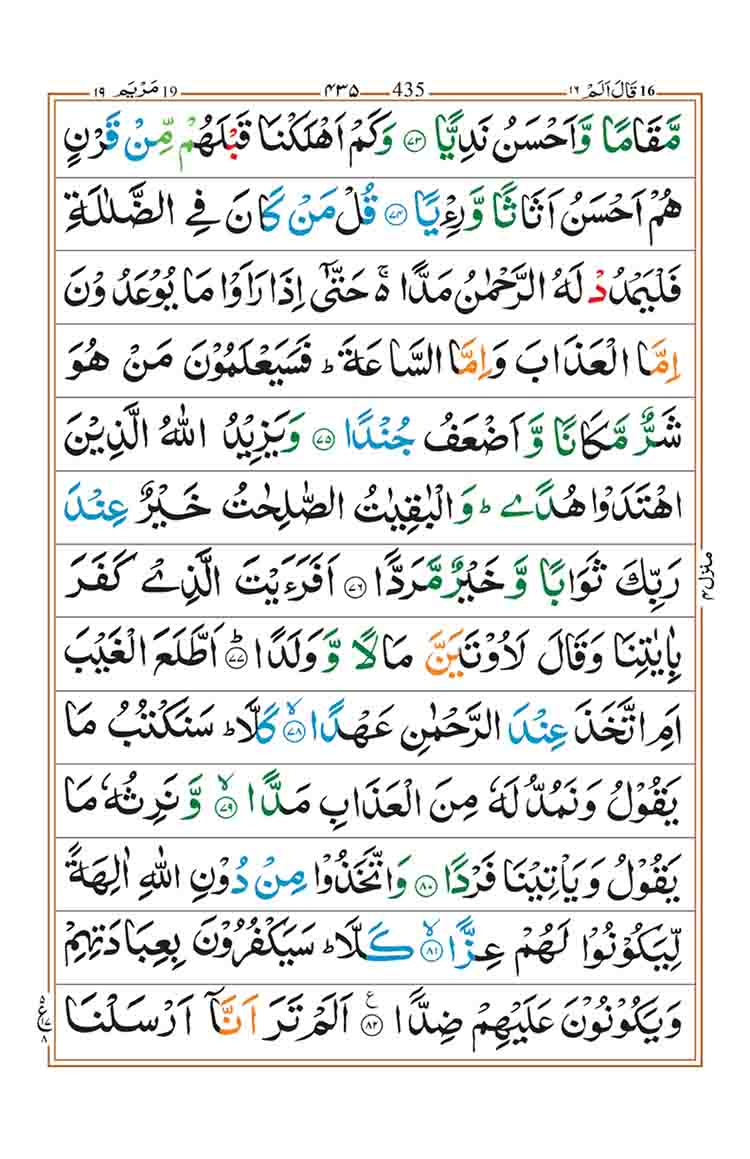 16 قَالَ اَلَمْ ١٦ 435 ٤٣٥ 19 مَرْيَم ١٩
مَّقَامًا وَّاَحْسَنُ نَدِيًّا ﴿٧٣﴾ وَكَمْ اَهْلَكْنَا قَبْلَهُمْ مِّنْ قَرْنٍ
هُمْ اَحْسَنُ اَثَاثًا وَّرِءْيًا ﴿٧٤﴾ قُلْ مَنْ كَانَ فِي الضَّلٰلَةِ
فَلْيَمْدُدْ لَهُ الرَّحْمٰنُ مَدًّا ەۚ حَتّٰٓى اِذَا رَاَوْا مَا يُوْعَدُوْنَ
اِمَّا الْعَذَابَ وَاِمَّا السَّاعَةَ ؕ فَسَيَعْلَمُوْنَ مَنْ هُوَ
شَرٌّ مَّكَانًا وَّاَضْعَفُ جُنْدًا ﴿٧٥﴾ وَيَزِيْدُ اللّٰهُ الَّذِيْنَ
اهْتَدَوْا هُدًى ؕ وَالْبٰقِيٰتُ الصّٰلِحٰتُ خَيْرٌ عِنْدَ
رَبِّكَ ثَوَابًا وَّخَيْرٌ مَّرَدًّا ﴿٧٦﴾ اَفَرَءَيْتَ الَّذِيْ كَفَرَ
بِاٰيٰتِنَا وَقَالَ لَاُوْتَيَنَّ مَالًا وَّوَلَدًا ؕ ﴿٧٧﴾ اَطَّلَعَ الْغَيْبَ
اَمِ اتَّخَذَ عِنْدَ الرَّحْمٰنِ عَهْدًا ۙ ﴿٧٨﴾ كَلَّا ؕ سَنَكْتُبُ مَا
يَقُوْلُ وَنَمُدُّ لَهٗ مِنَ الْعَذَابِ مَدًّا ۙ ﴿٧٩﴾ وَّنَرِثُهٗ مَا
يَقُوْلُ وَيَاْتِيْنَا فَرْدًا ﴿٨٠﴾ وَاتَّخَذُوْا مِنْ دُوْنِ اللّٰهِ اٰلِهَةً
لِّيَكُوْنُوْا لَهُمْ عِزًّا ۙ ﴿٨١﴾ كَلَّا ؕ سَيَكْفُرُوْنَ بِعِبَادَتِهِمْ
وَيَكُوْنُوْنَ عَلَيْهِمْ ضِدًّا ﴿٨٢﴾ ع اَلَمْ تَرَ اَنَّآ اَرْسَلْنَا
منزل ٤
٥ ع ١٧ ٨